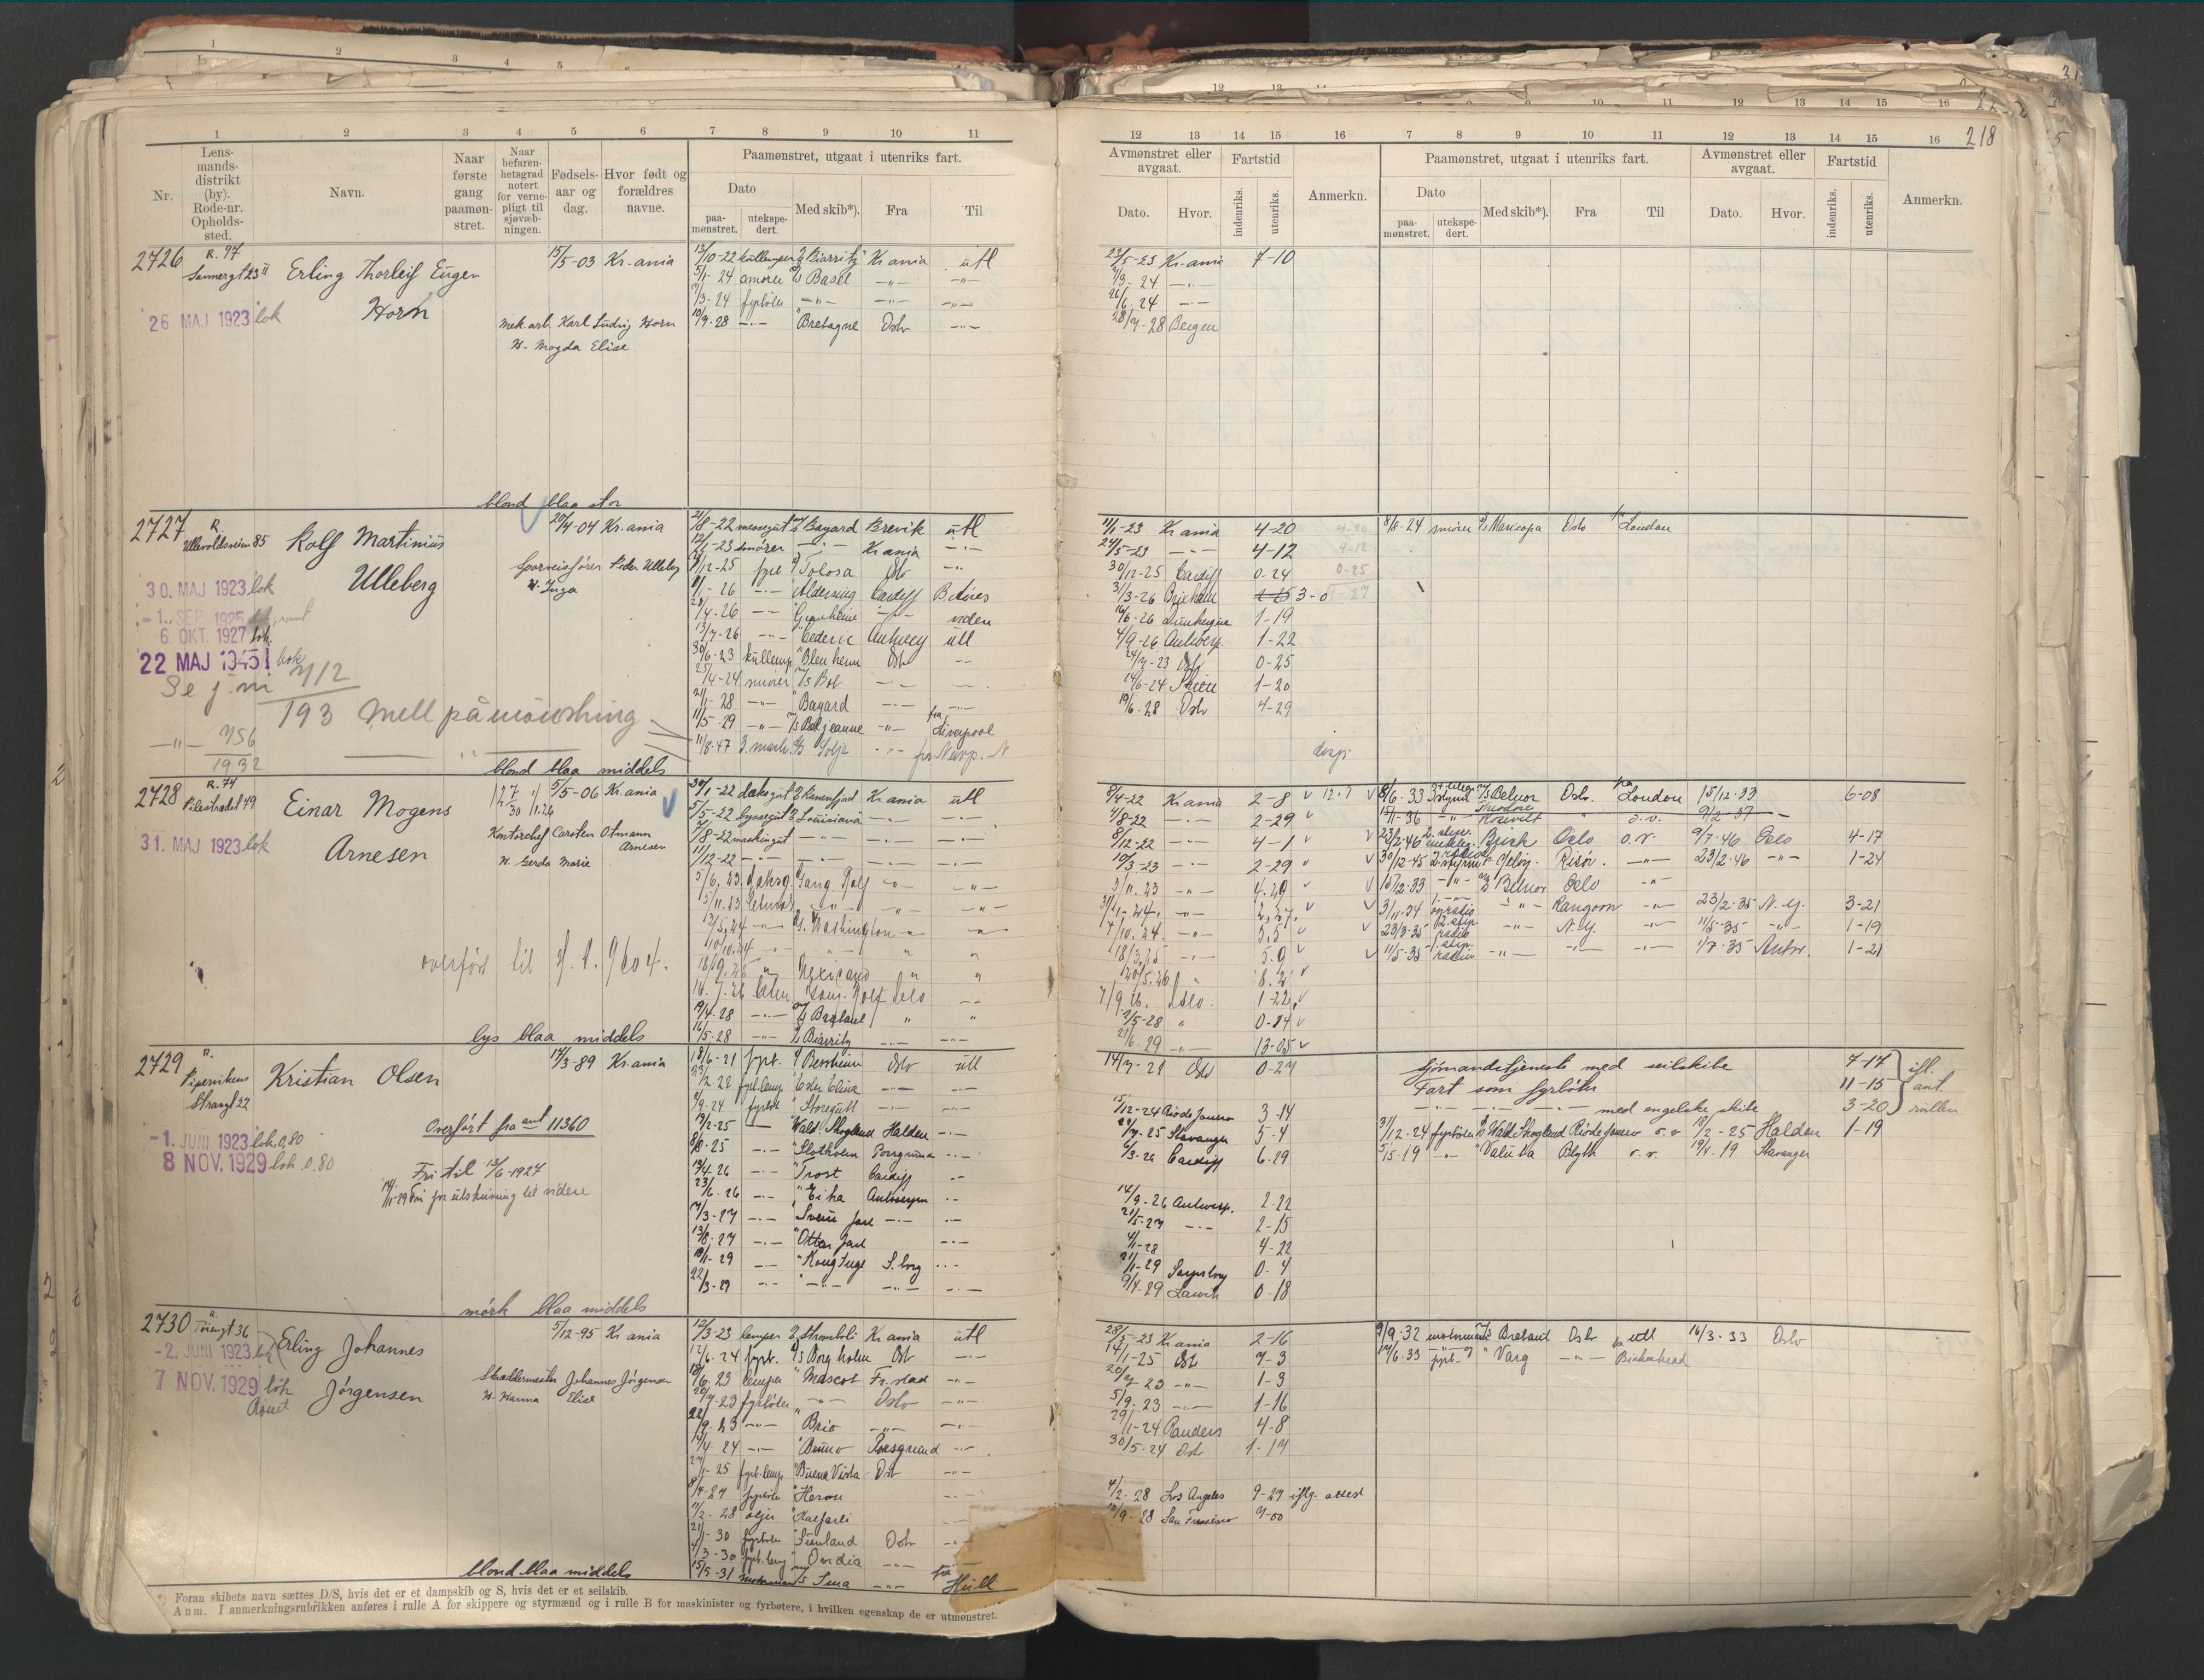 218
1 2 3 4 5 6 7 8 9 10 11
Nr.
Lens-mands-distrikt (by). Rode-nr. Opholds-sted.
Navn.
Naar første gang paamøn-stret.
Naar befaren-hetsgrad notert for verne-pligt til sjøvæb-ningen.
Fødsels-aar og dag.
Hvor født og forældres navne.
Paamønstret, utgaat i utenriks fart.
Dato
paa-mønstret.
utekspe-dert.
Med skib*).
Fra
Til
2726 R. 97
Sannergt 23 II Erling Thorleif Eugen
Horn
15/5-03 Kr.ania
26 MAJ 1923 lok
Mek. arb. Karl Ludvig Horn
H. Magda Elise
13/10-22 kullemper Biarritz Kr ania utl
5/1-24 smører Basel -"- -"-
/3-24 fyrbøter -"- -"- -"-
10/9-28 -"- Bretagne Oslo -"-
blond blaa stor
2727 R.
Ullevoldsveien 85 Rolf Martinius
Ulleberg
/4-04 Kr.ania
Sporveisfører Peder Ulleberg
H. Inga
30. MAJ 1923 lok
-1. SEP. 1925
6. OKT. 1927 lok
22 MAJ 1945 lok
Se j.nr 712
193 Mell påmønstring
-"- 756
1932
21/8-22 messegut Bayard Brevik utl
12/1-23 smører -"- Kr ania -"-
/12-25 fyrb Tolosa Oslo -"-
/1-26 -"- Cardiff B. Aires
/4-26 -"- -"- orden
13/7-26 -"- Cederic Antwerp utl
30/6-23 kullemp Blenheim Oslo -"-
25/4-24 smører M/S Bob -"- -"-
21/1-28 -"- Bayard -"- -"-
11/5-29 -"- M/S Beljeanne -"- fra Liverpool
11/8-47 3. mask. Solja -"- fra Newp. N
blond blaa middels
2728 R. 74
Pilestrædet 49 Einar Mogens
Arnesen
127/30 1/11.26
5/5-06 Kr.ania
31. MAJ 1923 lok
Kontorchef Carsten Otmann Arnesen
H. Gerda Marie
overført til A. 1. 9604.
30/1-22 dæksgut Ranenfjord Kr ania utl
5/5-22 byssegut Louisiana -"- -"-
/8-22 maskingut -"- -"- -"-
11/12-22 -"- -"- -"- -"-
5/6.23. dæksg. Gang. Rolf -"- -"-
15/11.23 letmat. -"- -"- -"-
13/5.24 -"- Washington -"- -"-
10/10.24 -"- " " "
18/9.25 " Mexicano " "
16.7.26 Gang. Rolf Oslo -"-
19/4-28 -"- M/S Brabant " "
16/5-28 -"- Biarritz -"- -"-
lys blaa middels
2729 R.
Pipervikens Strangt 22 Kristian Olsen
17/3-89 Kr.ania
Overført fra ant 11360
-1. JUNI 1923 lok 0,80
8 NOV. 1929 lok 0.80
Fri til 13/6-1927
14/11-29 Fri for utskrivning til videre
18/6-21 fyrb. Bessheim Oslo utl
23/2-22 fyrb.lemp Ester Elina -"- -"-
/9-24 fyrbøt Storegutt -"- -"-
19/2-25 -"- Wald. Skogland Halden -"-
8/8-25 -"- Slotholm Porsgrund -"-
13/4-26 -"- Trost Cardiff -"-
23/6-26 -"- Eika Antwerpen -"-
7/3-27 -"- Svein Jarl -"- -"-
13/8-27 -"- Ottar Jarl -"-
10/1-29 -"- Kong Inge S.borg -"-
22/3-29 -"- -"- -"- -"-
mørk blaa middels
2730 R.
Tøiengt 36 Erling Johannes
Jørgensen
5/12-95 Kr ania
-2. JUNI 1923 lok
7 NOV. 1929 lok
Skræddermester Johannes Jørgensen
H. Hanna Elise
12/3-23 lemper Stromboli Kr ania utl
12/6-24 fyrb. Borgholm Oslo -"-
18/6-23 lemper Mascot Fr.stad -"-
20/7-23 fyrbøter -"- Oslo -"-
22/9-23 -"- Brio -"- -"-
14/4-24 -"- Bruno Porsgrund -"-
27/1-25 fyrb.lemp Buena Vista Oslo -"-
8/4-27 fyrbøter Heron -"-
11/2-28 oljer
21/1-30 fyrbøter Finland Oslo -"-
/3-30 fyrb.lemp Ovidia -"-
15/5-31 motormand M/S Sina -"- fra Hull
blond blaa middels
*) Foran skibets navn sættes D/S, hvis det er et dampskib og S, hvis det er et seilskib.
Anm. I anmerkningsrubrikken anføres i rulle A for skippere og styrmænd og i rulle B for maskinister og fyrbøtere, i hvilken egenskap de er utmønstret.
12 13 14 15 16 7 8 9 10 11 12 13 14 15 16
Avmønstret eller avgaat.
Dato. Hvor.
Fartstid
indenriks. utenriks.
Anmerkn.
Paamønstret, utgaat i utenriks fart.
Dato
paa-mønstret. utekspe-dert.
Med skib*). Fra Til
Avmønstret eller avgaat.
Dato. Hvor.
Fartstid
indenriks. utenriks.
Anmerkn.
23/5-23 Kr.ania 7-10
/3-24 -"-
26/6-24 -"-
28/7-28 Bergen
11/1-23 Kr ania 4-20 8/8-24 smører Maricopa Oslo fra London
24/5-23 -"- 4-12
30/12-25 Cardiff 0-24 0-25
3/3-26 3-0
16/6-26 1-19
4/9-26 Antwerp. 1-22
24/7-23 Oslo 0-25
14/6-24 Skien 1-20
19/6-28 Oslo 4-29
8/4-22 Kr ania 2-8 8/6-33 M/S Belnor Oslo fra London 15/12-33 6-08
4/8-22 -"- 2-29 15/1-36 -"- Theodore Rosevelt " o.v. 9/2-37 -
8/12-22 -"- 4-1 23/2-46 2. styr. Bjørk Oslo o.v. 9/7-46 Oslo 4-17
10/3-23 -"- 2-29 30/12-45 Jeløy. Risør. -"- 23/2-46 -"- 1-24
3/11.23 -"- 4.29 15/12-33 -"- Belnor Oslo -"-
31/1-24. -"- 3/11-34 -"- Rangoon -"- 23/2-35 N.Y. 3-21
7/10.24. -"- 5,5 23/3-35 2. styr. radio -"- N.Y. -"- 11/5-35 -"- 1-19
18/3.25 -"- 5.9 11/5-35 1. styr. radio -"- -"- -"- 1/7-35 Antw. 1-21
20/5.26 " 8.2
7/9 26. Oslo. 1-22
2/5-28 " 0-14
21/6-29 -"- 13-05
14/7-21 Oslo 0-27 Sjømandstjeneste med seilskibe 7-17
Fart som fyrbøter 11-15
-"- -"- -"- med engelske skibe 3-20
ifl. ant. rullen
15/12-24 Rio de Janero 3-14 31/12-24 fyrbøter Wald. Skogland Rio de Janero o.v. 18/2-25 Halden 1-19
24/7-25 Stavanger 5-4 5/5-19 -"- Valuta Blyth o.v. 19/8-19 Stavanger
6/3-26 Cardiff 6-29
14/9-26 Antwerp. 2-22
21/5-27 -"- 2-15
4/1-28 4-22
21/1-29 Sarpsborg 0-4
9/4-29 Larvik 0-18
28/5-23 Kr ania 2-16 9/9-32 motormand M/S Bretand Oslo utl 16/3-33 Oslo
14/1-25 Oslo 7-3 /6-33 fyrb. Varg -"- fra Birkenhead
20/7-23 -"- 1-3
5/9-23 -"- 1-16
29/1-24 Randers 4-8
30/5-24 Oslo 1-17
4/2-28 Los Angeles 9-27 iflg. attest
10/9-28 San Francisco 7-00